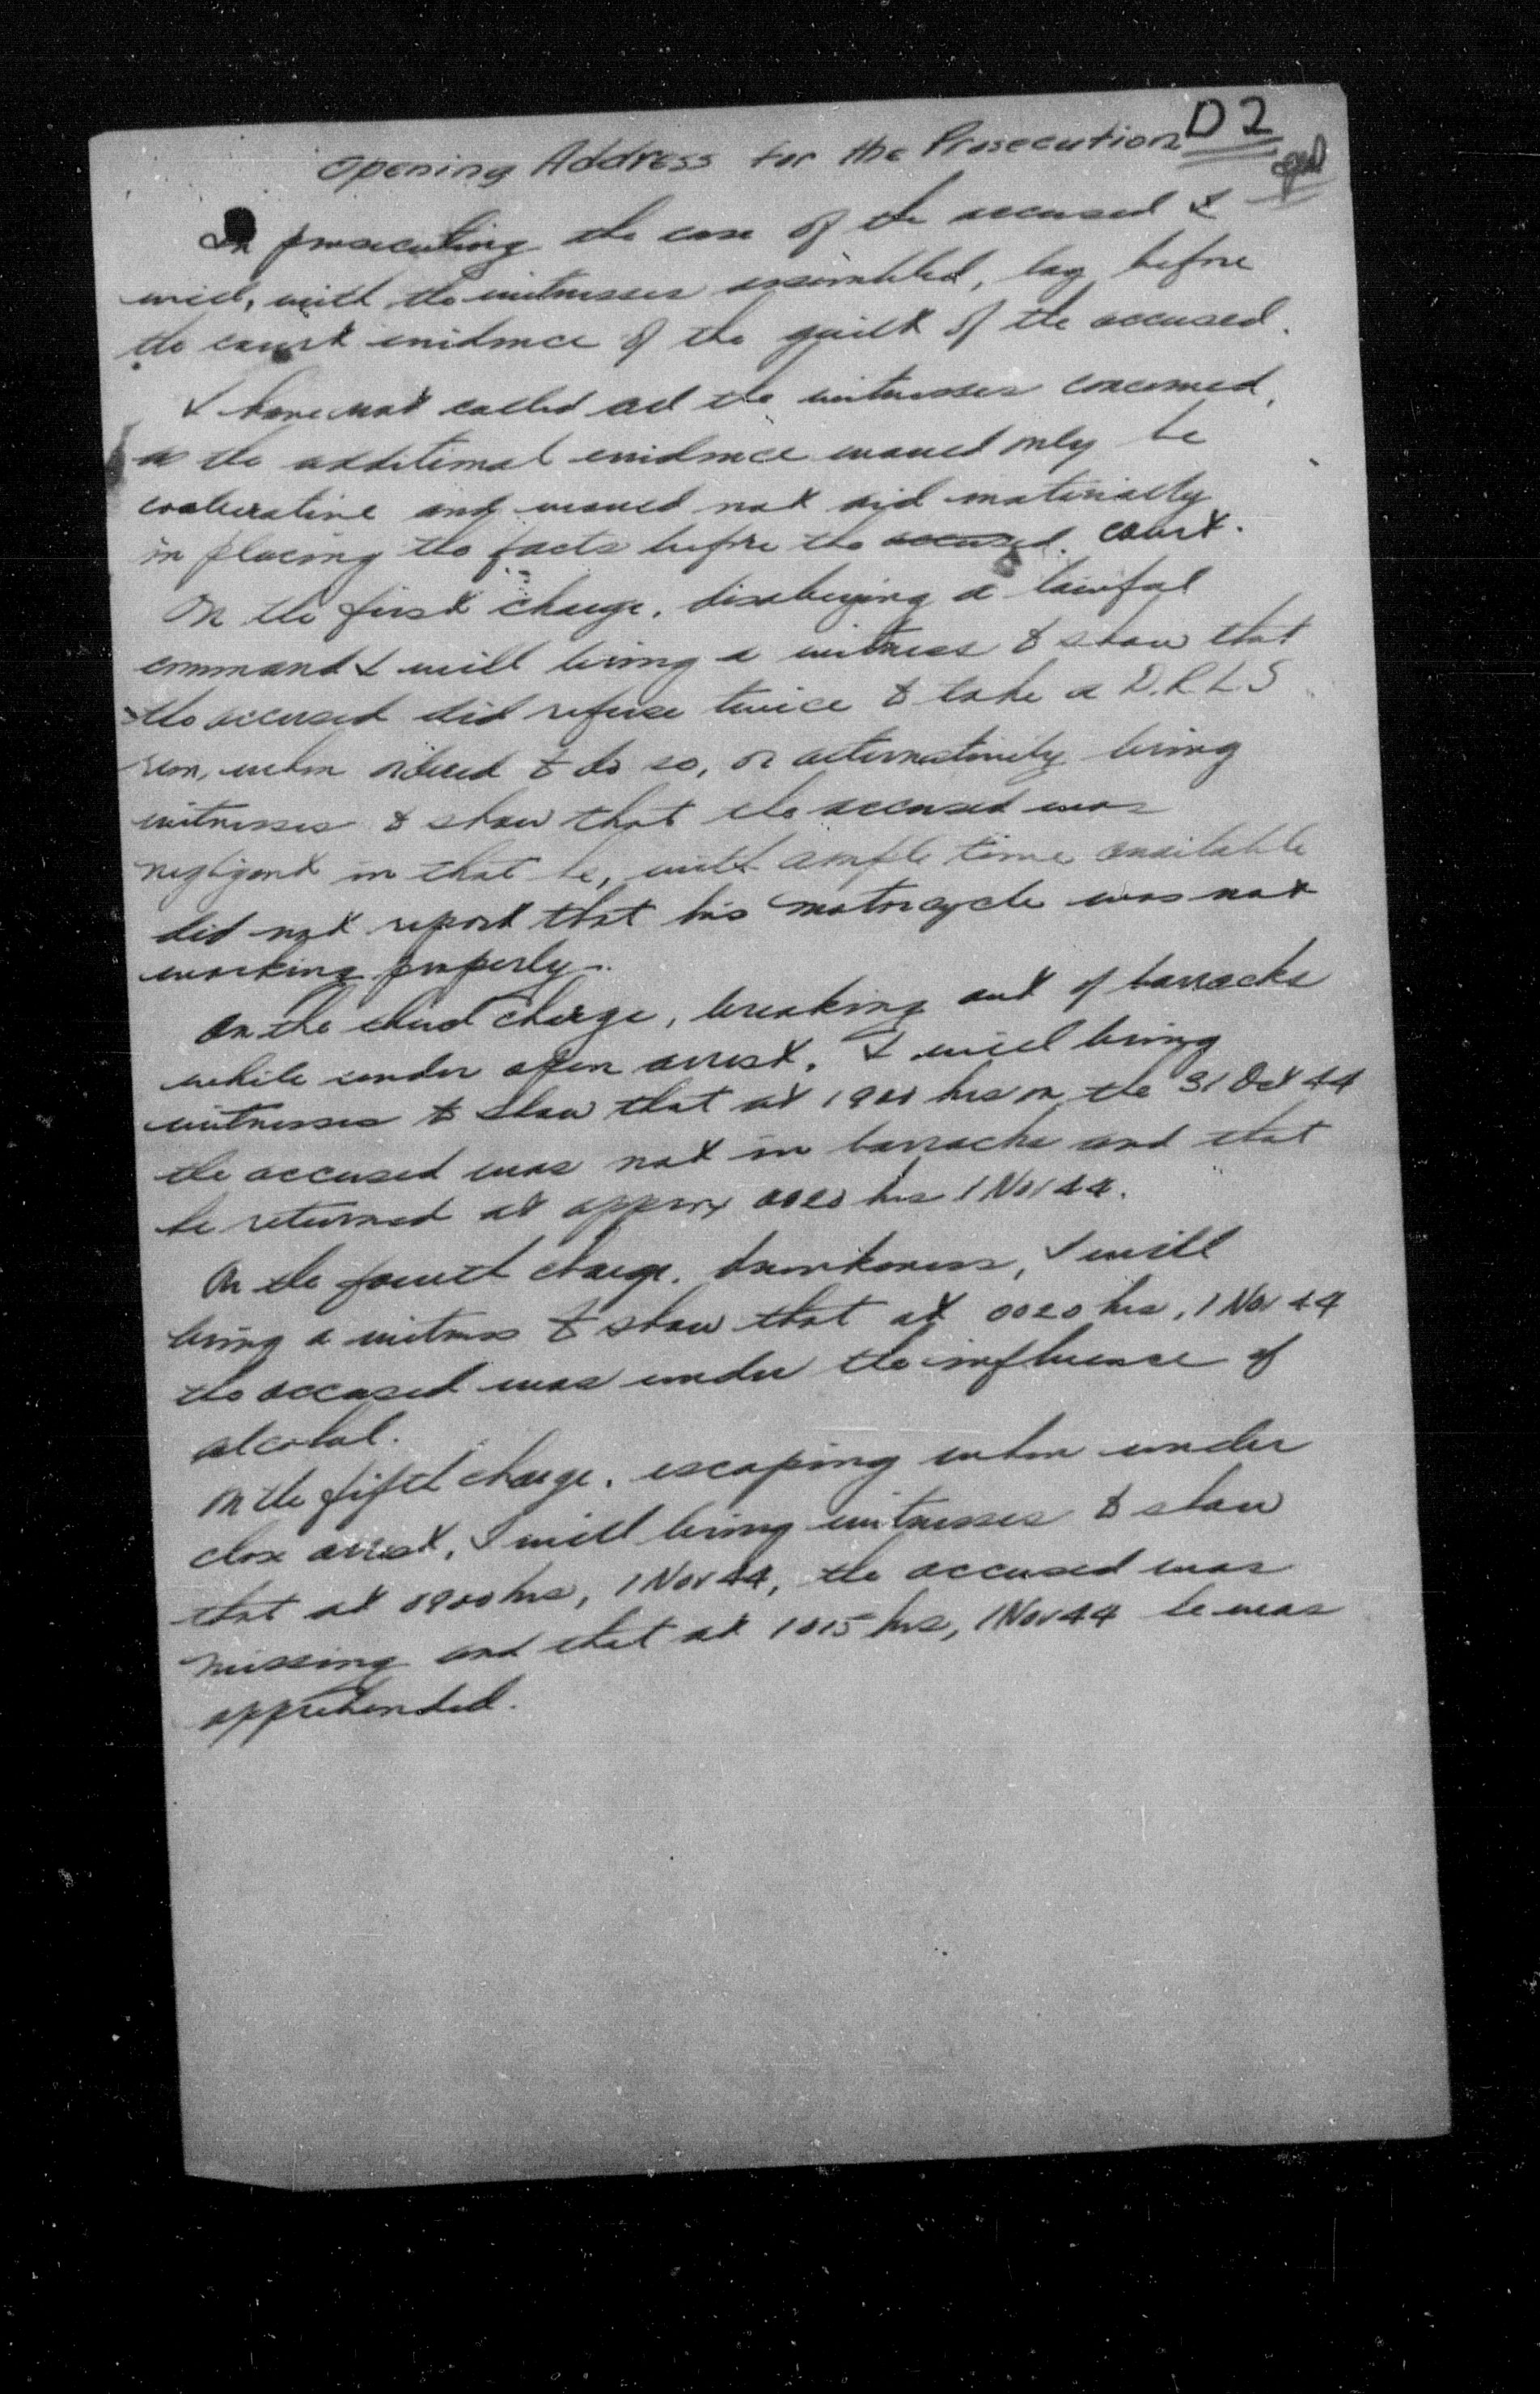 D 2
Opening Address for the Prosecution
In prosecuting the case of the accused I
will, with the witnesses assembled, lay before
the court evidence of the guilt of the accused.
I have not called all the witnesses concerned,
as the additional evidence would only be
and would not aid materially
in placing the facts before the accused. court.
On the first charge, disobeying a lawful
command I will bring a witness to show that
the accused did refuse twice to take a D.R.L.S
run, when ordered to do so, or alternatively bring
witnesses to show that the accused was
negligent in that he, with ample time available
did not report that his motorcycle was not
working properly.
On the third charge, breaking out of barracks
while under open arrest, I will bring
witnesses to show that at 1900 hrs on the 31 Oct 44
the accused was not in barracks and that
he returned at approx 0020 hrs 1 Nov 44.
On the fourth charge, drunkeness, I will
bring a witness to show that at 0020 hrs, 1 Nov 44
the accused was under the influence of
alcohol.
On the fifth charge, escaping when under
close arrest, I will bring witnesses to show
that at 0900 hrs, 1 Nov 44, the accused was
missing and that at 1015 hrs, 1 Nov 44 he was
apprehended.